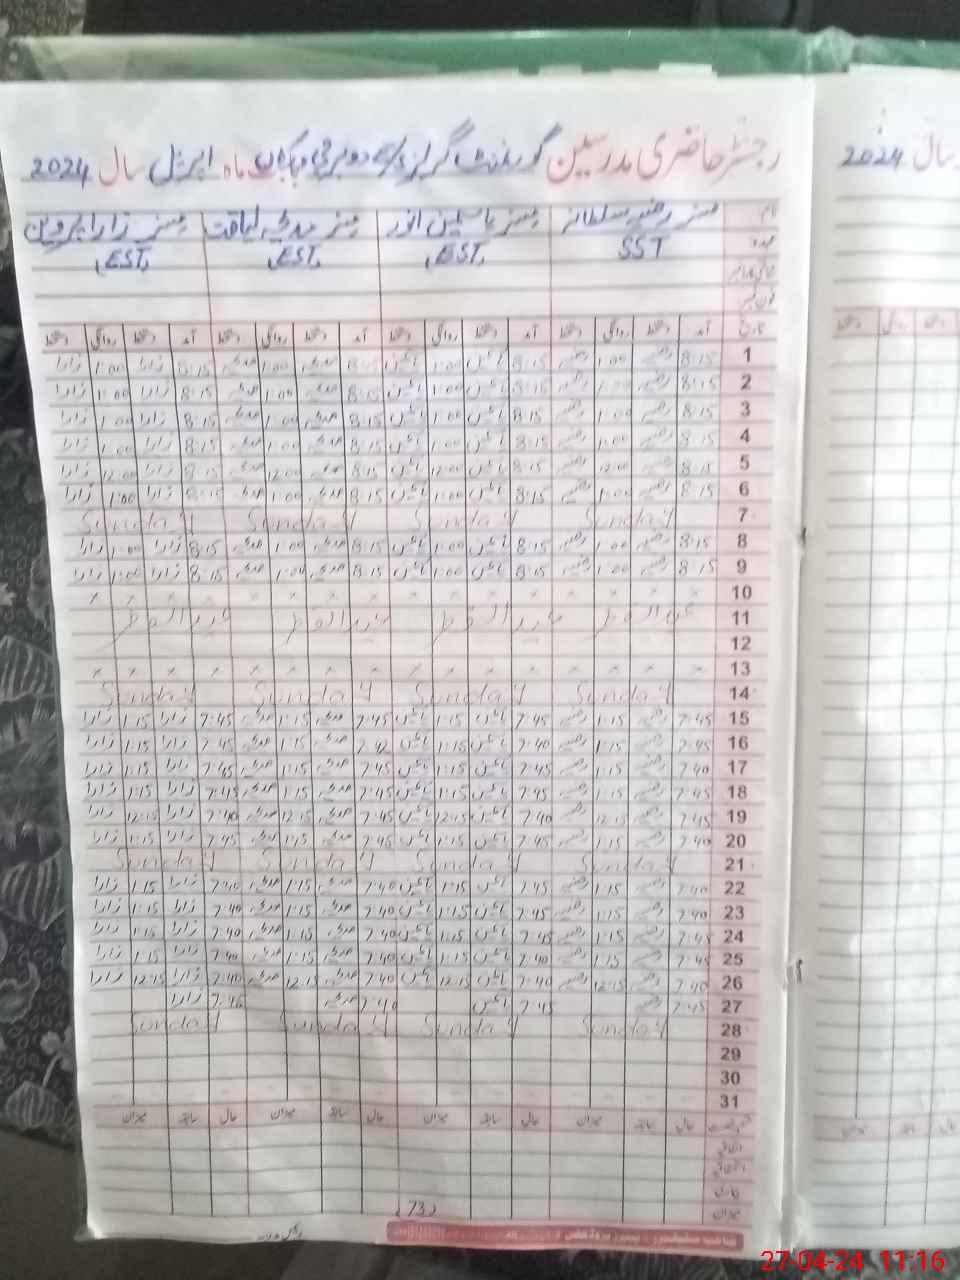 رجسٹر حاضری مدرسین گورنمنٹ گرلز ماہ اپریل سال 2024
سال 2024
نام مسز رضیہ سلطانہ مسز یاسمین انور مسز مدیحہ لیاقت مسز زارا پروین
عہدہ SST EST EST EST
تاریخ آمد دستخط روانگی دستخط آمد دستخط روانگی دستخط آمد دستخط روانگی دستخط آمد دستخط روانگی دستخط
1 8:15 رضیہ 1:00 رضیہ 8:15 یاسمین 1:00 یاسمین 8:15 مدیحہ 1:00 مدیحہ 8:15 زارا 1:00 زارا
2 8:15 رضیہ 1:00 رضیہ 8:15 یاسمین 1:00 یاسمین 8:15 مدیحہ 1:00 مدیحہ 8:15 زارا 1:00 زارا
3 8:15 رضیہ 1:00 رضیہ 8:15 یاسمین 1:00 یاسمین 8:15 مدیحہ 1:00 مدیحہ 8:15 زارا 1:00 زارا
4 8:15 رضیہ 1:00 رضیہ 8:15 یاسمین 1:00 یاسمین 8:15 مدیحہ 1:00 مدیحہ 8:15 زارا 1:00 زارا
5 8:15 رضیہ 12:00 رضیہ 8:15 یاسمین 12:00 یاسمین 8:15 مدیحہ 12:00 مدیحہ 8:15 زارا 12:00 زارا
6 8:15 رضیہ 1:00 رضیہ 8:15 یاسمین 1:00 یاسمین 8:15 مدیحہ 1:00 مدیحہ 8:15 زارا 1:00 زارا
7 Sunday Sunday Sunday Sunday
8 8:15 رضیہ 1:00 رضیہ 8:15 یاسمین 1:00 یاسمین 8:15 مدیحہ 1:00 مدیحہ 8:15 زارا 1:00 زارا
9 8:15 رضیہ 1:00 رضیہ 8:15 یاسمین 1:00 یاسمین 8:15 مدیحہ 1:00 مدیحہ 8:15 زارا 1:00 زارا
10 × × × × × × × × × × × × × × × ×
11 عید الفطر عید الفطر عید الفطر عید الفطر
12
13 × × × × × × × × × × × × × × × ×
14 Sunday Sunday Sunday Sunday
15 7:45 رضیہ 1:15 رضیہ 7:45 یاسمین 1:15 یاسمین 7:45 مدیحہ 1:15 مدیحہ 7:45 زارا 1:15 زارا
16 7:45 رضیہ 1:15 رضیہ 7:40 یاسمین 1:15 یاسمین 7:42 مدیحہ 1:15 مدیحہ 7:45 زارا 1:15 زارا
17 7:40 رضیہ 1:15 رضیہ 7:45 یاسمین 1:15 یاسمین 7:45 مدیحہ 1:15 مدیحہ 7:45 زارا 1:15 زارا
18 7:45 رضیہ 1:15 رضیہ 7:45 یاسمین 1:15 یاسمین 7:45 مدیحہ 1:15 مدیحہ 7:45 زارا 1:15 زارا
19 7:45 رضیہ 12:15 رضیہ 7:40 یاسمین 12:15 یاسمین 7:45 مدیحہ 12:15 مدیحہ 7:40 زارا 12:15 زارا
20 7:40 رضیہ 1:15 رضیہ 7:45 یاسمین 1:15 یاسمین 7:45 مدیحہ 1:15 مدیحہ 7:45 زارا 1:15 زارا
21 Sunday Sunday Sunday Sunday
22 7:40 رضیہ 1:15 رضیہ 7:45 یاسمین 1:15 یاسمین 7:40 مدیحہ 1:15 مدیحہ 7:40 زارا 1:15 زارا
23 7:40 رضیہ 1:15 رضیہ 7:45 یاسمین 1:15 یاسمین 7:40 مدیحہ 1:15 مدیحہ 7:40 زارا 1:15 زارا
24 7:45 رضیہ 1:15 رضیہ 7:45 یاسمین 1:15 یاسمین 7:40 مدیحہ 1:15 مدیحہ 7:40 زارا 1:15 زارا
25 7:45 رضیہ 1:15 رضیہ 7:40 یاسمین 1:15 یاسمین 7:40 مدیحہ 1:15 مدیحہ 7:40 زارا 1:15 زارا
26 7:40 رضیہ 12:15 رضیہ 7:40 یاسمین 12:15 یاسمین 7:40 مدیحہ 12:15 مدیحہ 7:40 زارا 12:15 زارا
27 7:45 رضیہ 7:45 یاسمین 7:40 مدیحہ 7:45 زارا
28 Sunday Sunday Sunday Sunday
29
30
31
حال سابقہ میزان حال سابقہ میزان حال سابقہ میزان حال سابقہ میزان
اتفاقیہ
میزان
(73)
27-04-24 11:16